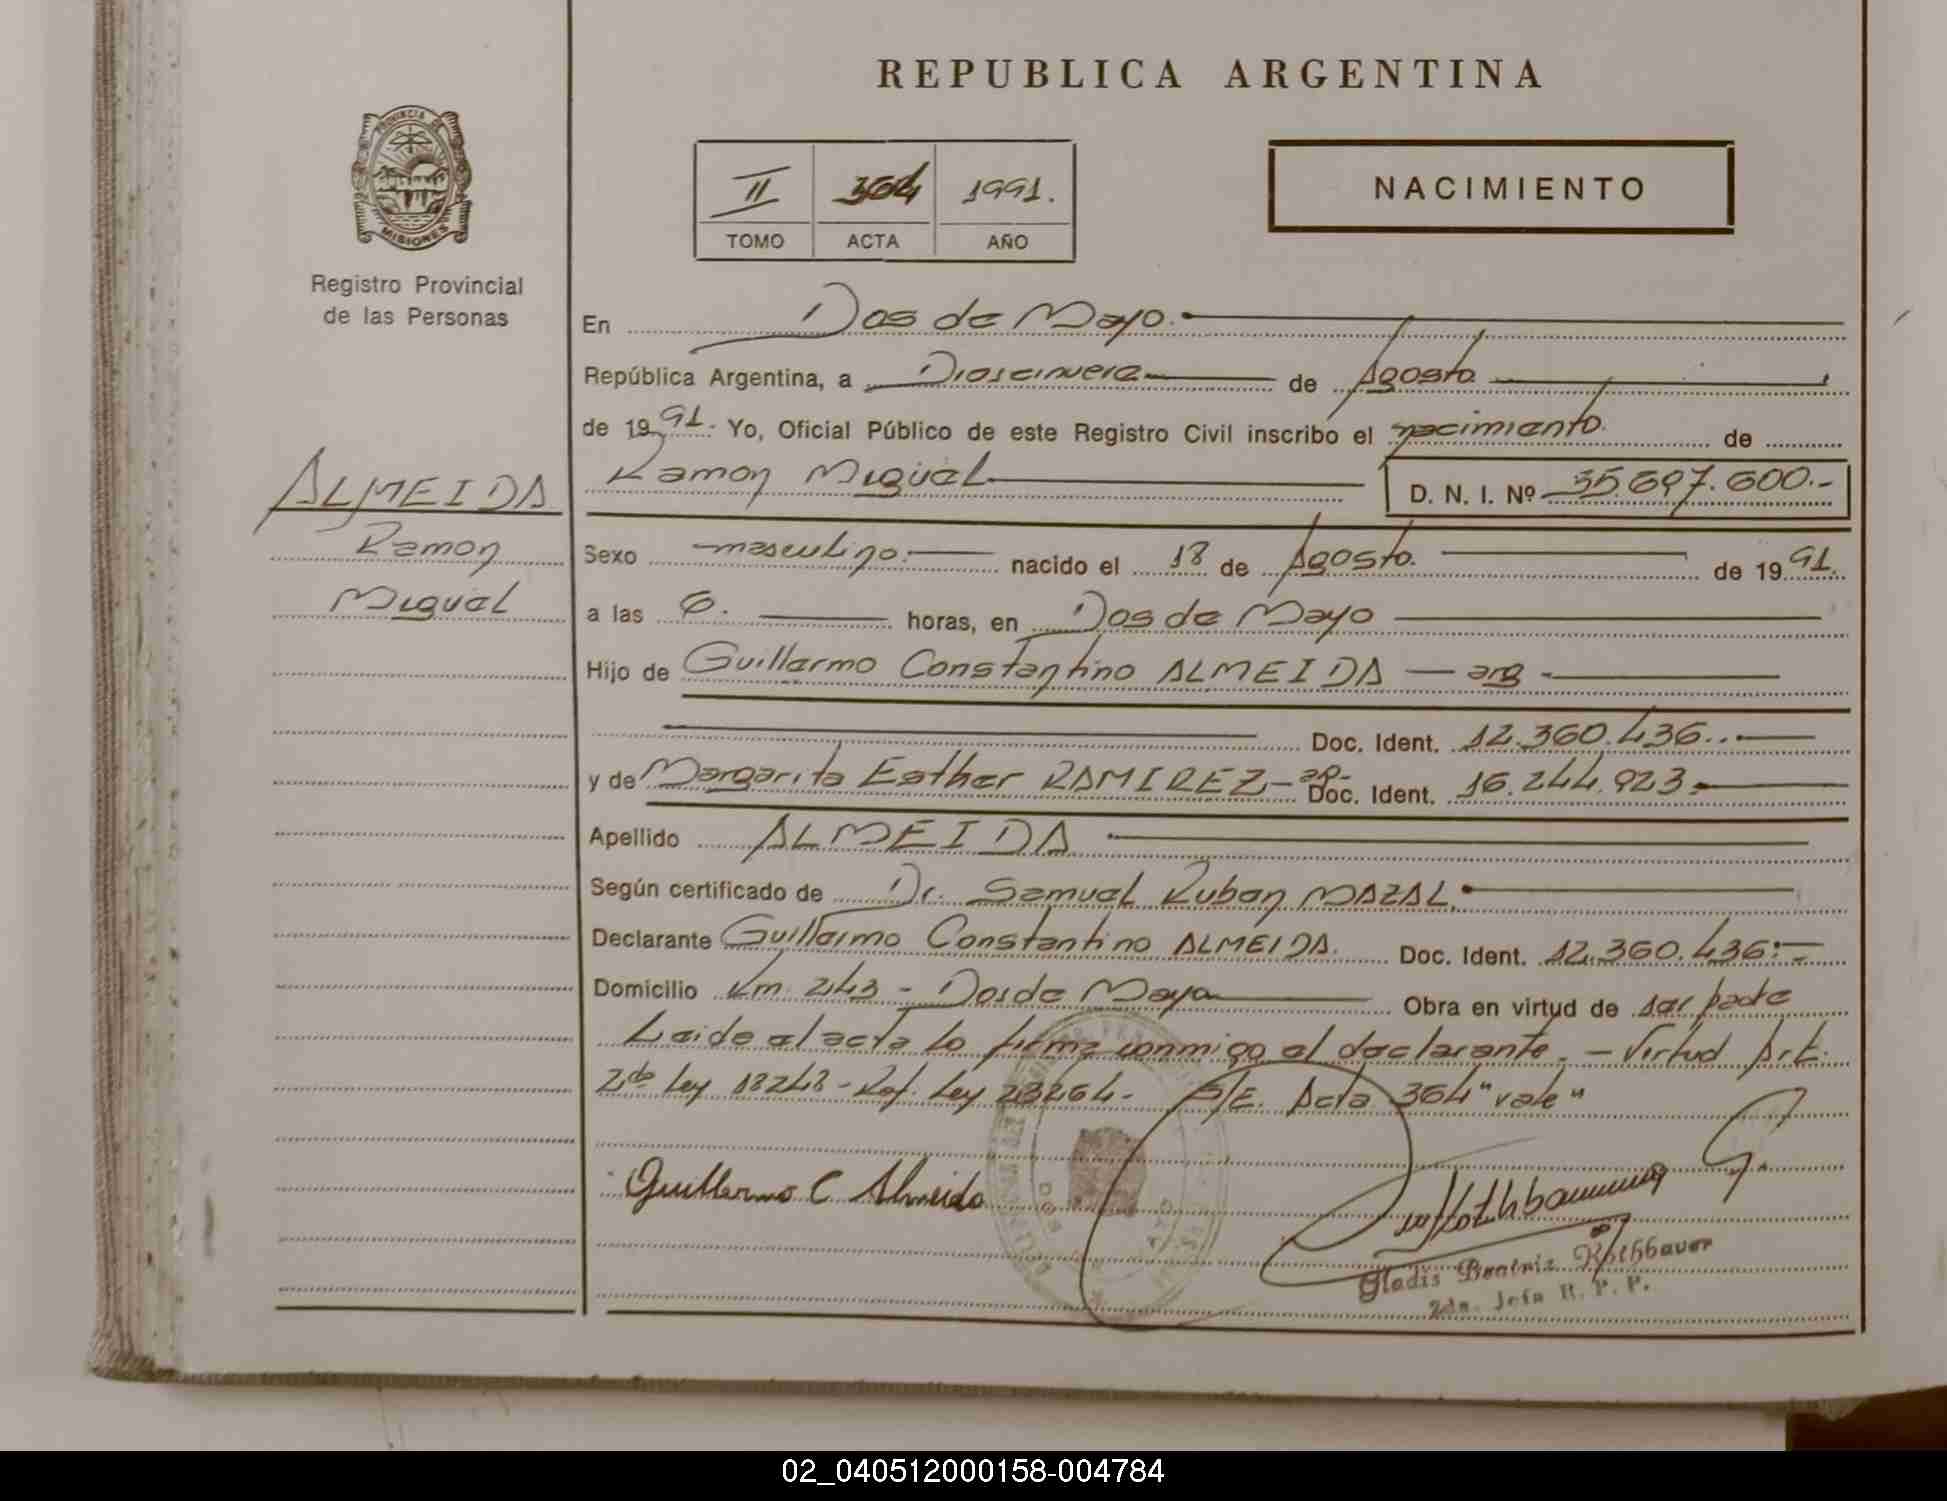 REPUBLICA ARGENTINA
PROVINCIA DE
MISIONES
Registro Provincial
de las Personas
II 364 1991.
TOMO ACTA AÑO
NACIMIENTO
En Dos de Mayo.
República Argentina, a Diescinueve de Agosto
de 1991. Yo, Oficial Público de este Registro Civil inscribo el nacimiento de
Ramon Miguel D. N. I. Nº 35.697.600.-
ALMEIDA
Ramon
Miguel
Sexo masculino. nacido el 18 de Agosto. de 1991.
a las 6. horas, en Dos de Mayo
Hijo de Guillermo Constantino ALMEIDA — arg -
Doc. Ident. 12.360.436..-
y de Margarita Esther RAMIREZ - ar- Doc. Ident. 16.244.923.-
Apellido ALMEIDA
Según certificado de Dr. Samuel Ruben MAZAL.
Declarante Guillermo Constantino ALMEIDA. Doc. Ident. 12.360.436:-
Domicilio Km. 243 - Dos de Mayo Obra en virtud de ser padre
Leide el acta lo firma conmigo el declarante. - Virtud Art.
2do Ley 18248 - Ref. Ley 23264. - S/E. Acta 364 "vale"
Guillermo C Almeida
Gladis Beatriz Rothbauer
2da. Jefa R. P. P.
02_040512000158-004784